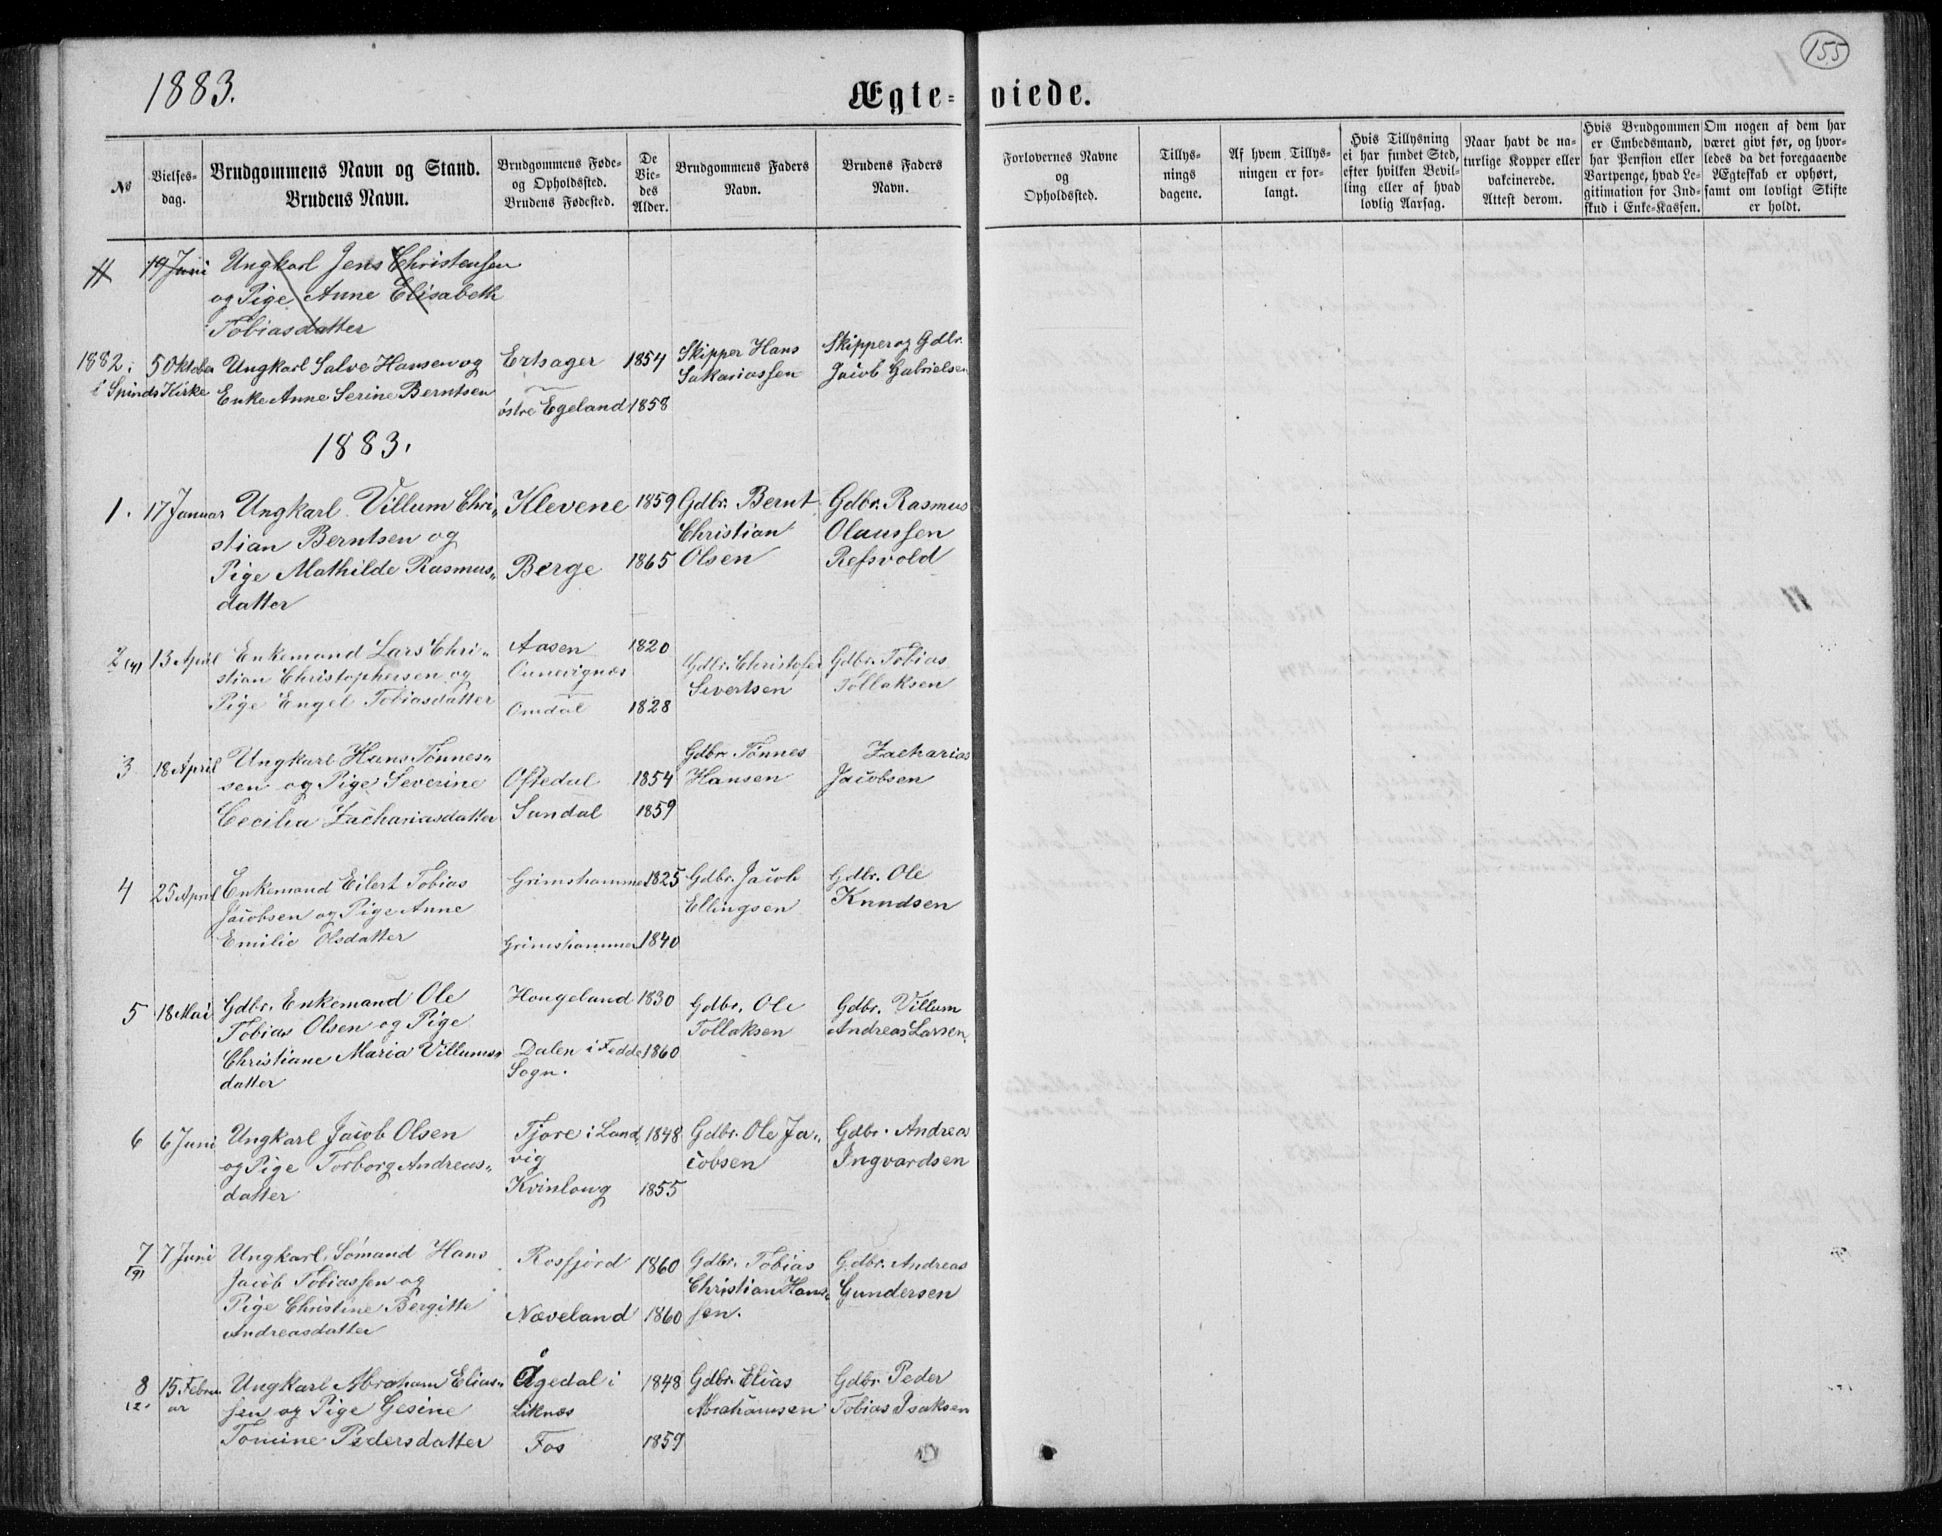 155
1883.
Ægte-viede.
No
Vielses-
dag.
Brudgommens Navn og Stand.
Brudens Navn.
Brudgommens Føde-
og Opholdssted.
Brudens Fødested.
De
Vie-
des
Alder.
Brudgommens Faders
Navn.
Brudens Faders
Navn.
Forlovernes Navne
og
Opholdssted.
Tillys-
nings
dagene.
Af hvem Tillys-
ningen er for-
langt.
Hvis Tillysning
ei har fundet Sted,
efter hvilken Bevil-
ling eller af hvad
lovlig Aarsag.
Naar havt de na-
turlige Kopper eller
vakcinerede.
Attest derom.
Hvis Brudgommen
er Embedsmand,
har Pension eller
Vartpenge, hvad Le-
gitimation for Ind-
skud i Enke-Kassen.
Om nogen af dem har
været givt før, og hvor-
ledes da det foregaaende
Ægteskab er ophørt,
samt om lovligt Skifte
er holdt.
11 19 Juni Ungkarl Jens Christensen
og Pige Anne Elisabeth
Tobiasdatter
1882: 5 Oktober Ungkarl Salve Hansen og Ertsager 1854 Skipper Hans Skipper og Gdbr.
i Spinds Kirke Enke Anne Serine Berntsen østre Egeland 1858 Sakariassen Jacob Gabrielsen
1883.
1. 17 Januar Ungkarl Villum Chri- Klevene 1859 Gdbr. Bernt Gdbr. Rasmus
stian Berntsen og Christian Olaussen
Pige Mathilde Rasmus- Berge 1865 Olsen Refsvold
datter
2 (4) 13 April Enkemand Lars Chri- Aasen 1820 Gdbr. Christofer Gdbr. Tobias
stian Christophersen og Sivertsen Tollaksen
Pige Engel Tobiasdatter Omdal 1828
3 18 April Ungkarl Hans Tønnes- Gdbr. Tønnes Zacharias
sen og Pige Severine Oftedal 1854 Hansen Jacobsen
Cecilia Zachariasdatter Sandal 1859
4 25 April Enkemand Eilert Tobias Grimshammer 1825 Gdbr. Jacob Gdbr. Ole
Jacobsen og Pige Anne Ellingsen Knudsen
Emilie Olsdatter Grimshammer 1840
5 18 Mai Gdbr. Enkemand Ole Hougeland 1830 Gdbr. Ole Gdbr. Villum
Tobias Olsen og Pige Tollaksen Andreas Larsen
Christiane Maria Villums- Dalen i Fedde 1860
datter Sogn.
6 6 Juni Ungkarl Jacob Olsen Tjore i Land- 1848 Gdbr. Ole Ja- Gdbr. Andrea
og Pige Torborg Andreas- vig cobsen Ingvardsen
datter Kvinloug 1855
7 (9) 7 Juni Ungkarl, Sømand Hans Rosfjord 1860 Gdbr. Tobias Gdbr. Andreas
Jacob Tobiassen og Christian Hans- Gundersen
Pige Christine Bergitte Næveland 1860 sen.
Andreasdatter
8 (2. 15 Febru Ungkarl Abraham Elias- Ågedal i 1848 Gdbr. Elias Gdbr. Peder
ar sen og Pige Gesine Liknæs Abrahamsen Tobias Isaksen
Tomine Pedersdatter Fos 1859